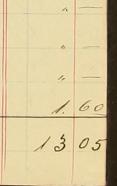 " —
" —
" —
1. 60
13 05